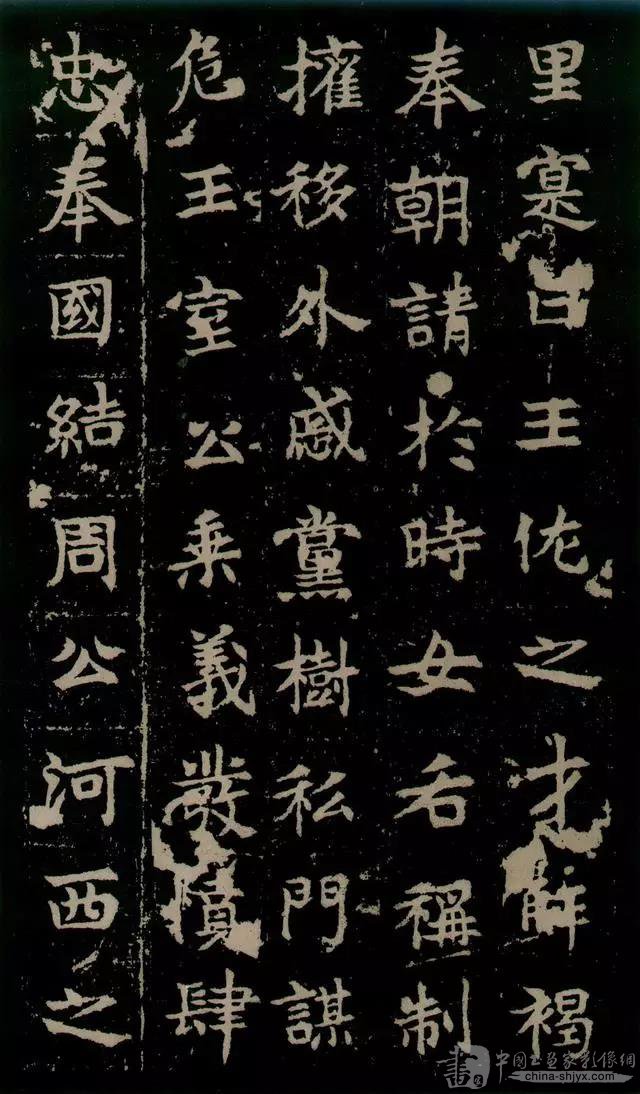 里寔曰王佐之才解褐
奉朝請於時女后稱制
擁移外戚黨樹私門謀
危王室公乘義發憤肆
忠奉國結周公河西之
中国书画家影像網
china-shjyx.com